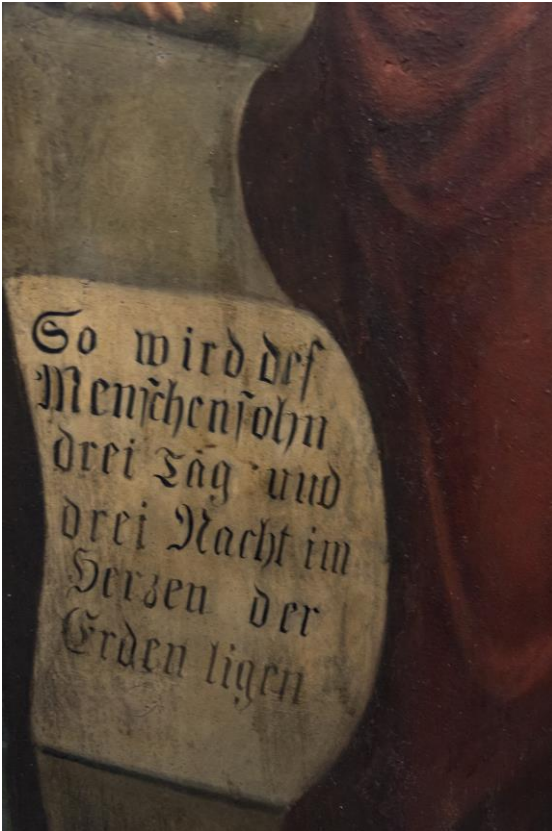 So wird deſ
Menſchenſohn
drei Tag und
drei Nacht im
Herzen der
Erden ligen